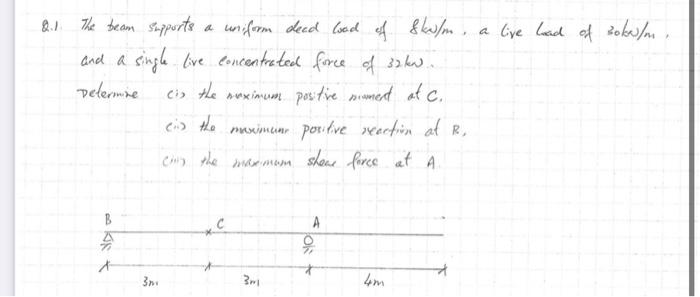 Q.1. The beam supports a uniform dead load of 8kN/m, a live load of 30kN/m,
and a single live concentrated force of 32kN.
Determine (i) the maximum positive moment at C.
(ii) the maximum positive reaction at B,
(iii) the maximum shear force at A
B C A
3m 3m 4m